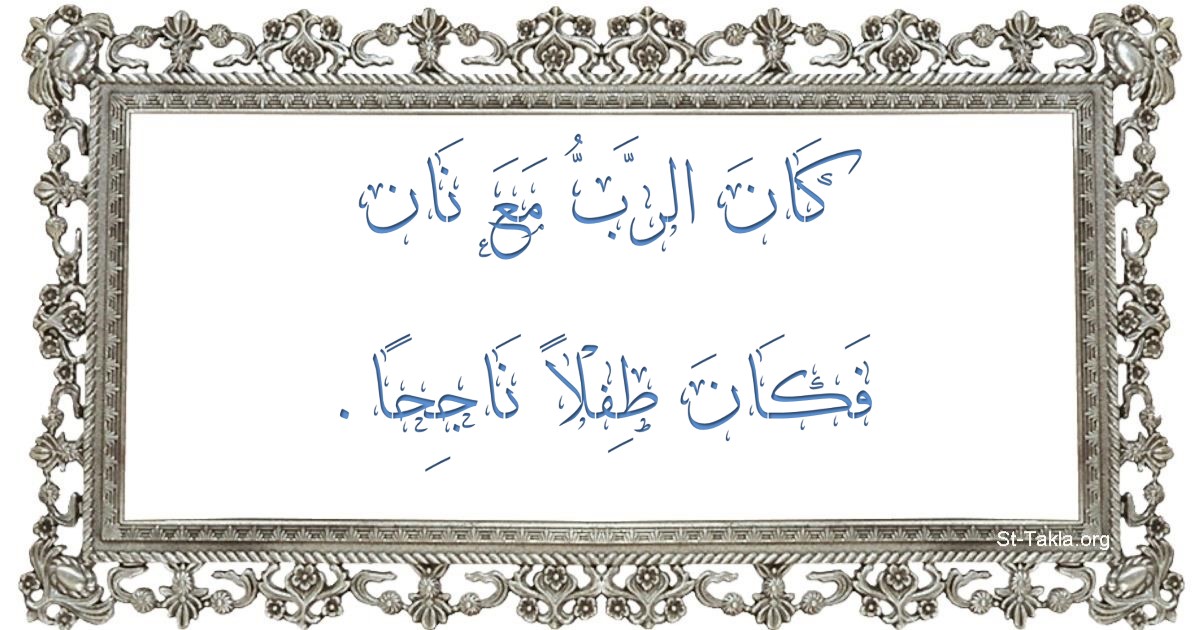 كَانَ الرَّبُّ مَعَ نَان
فَكَانَ طِفْلاً نَاجِحًا .
St-Takla.org